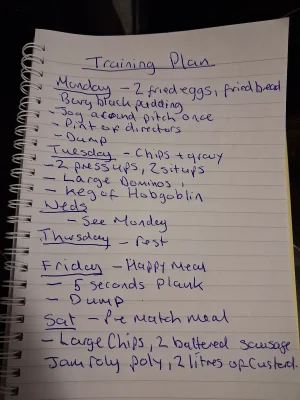 Training Plan
Monday - 2 fried eggs, fried bread
Bury black pudding
- Jog around pitch once
- Pint of directors
- Dump
Tuesday - Chips + gravy
- 2 press ups, 2 situps
- Large Dominos
- Keg of Hobgoblin
Weds
- See Monday
Thursday - rest
Friday - Happy Meal
- 5 seconds Plank
- Dump
Sat - Pre Match meal
- Large Chips, 2 battered sausage
Jam roly poly, 2 litres of custard.